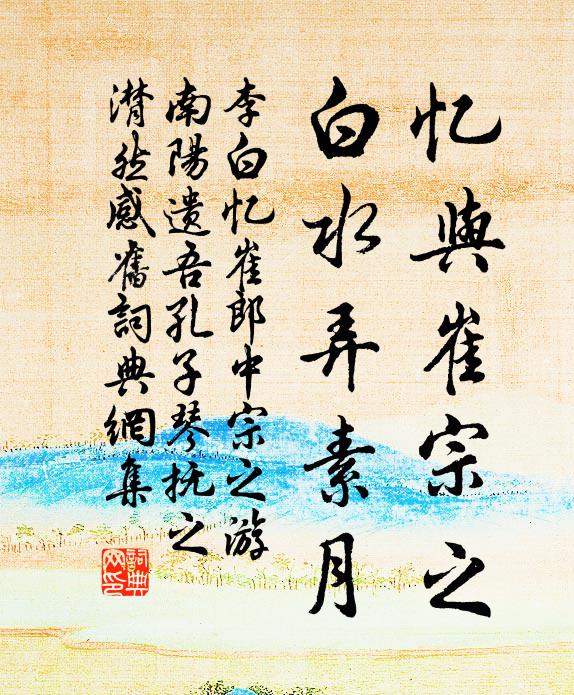 忆與崔宗之
白水弄素月
李白忆崔郎中宗之游
南陽遗吾孔子琴抚之
潸然感舊詞典網集
詞典